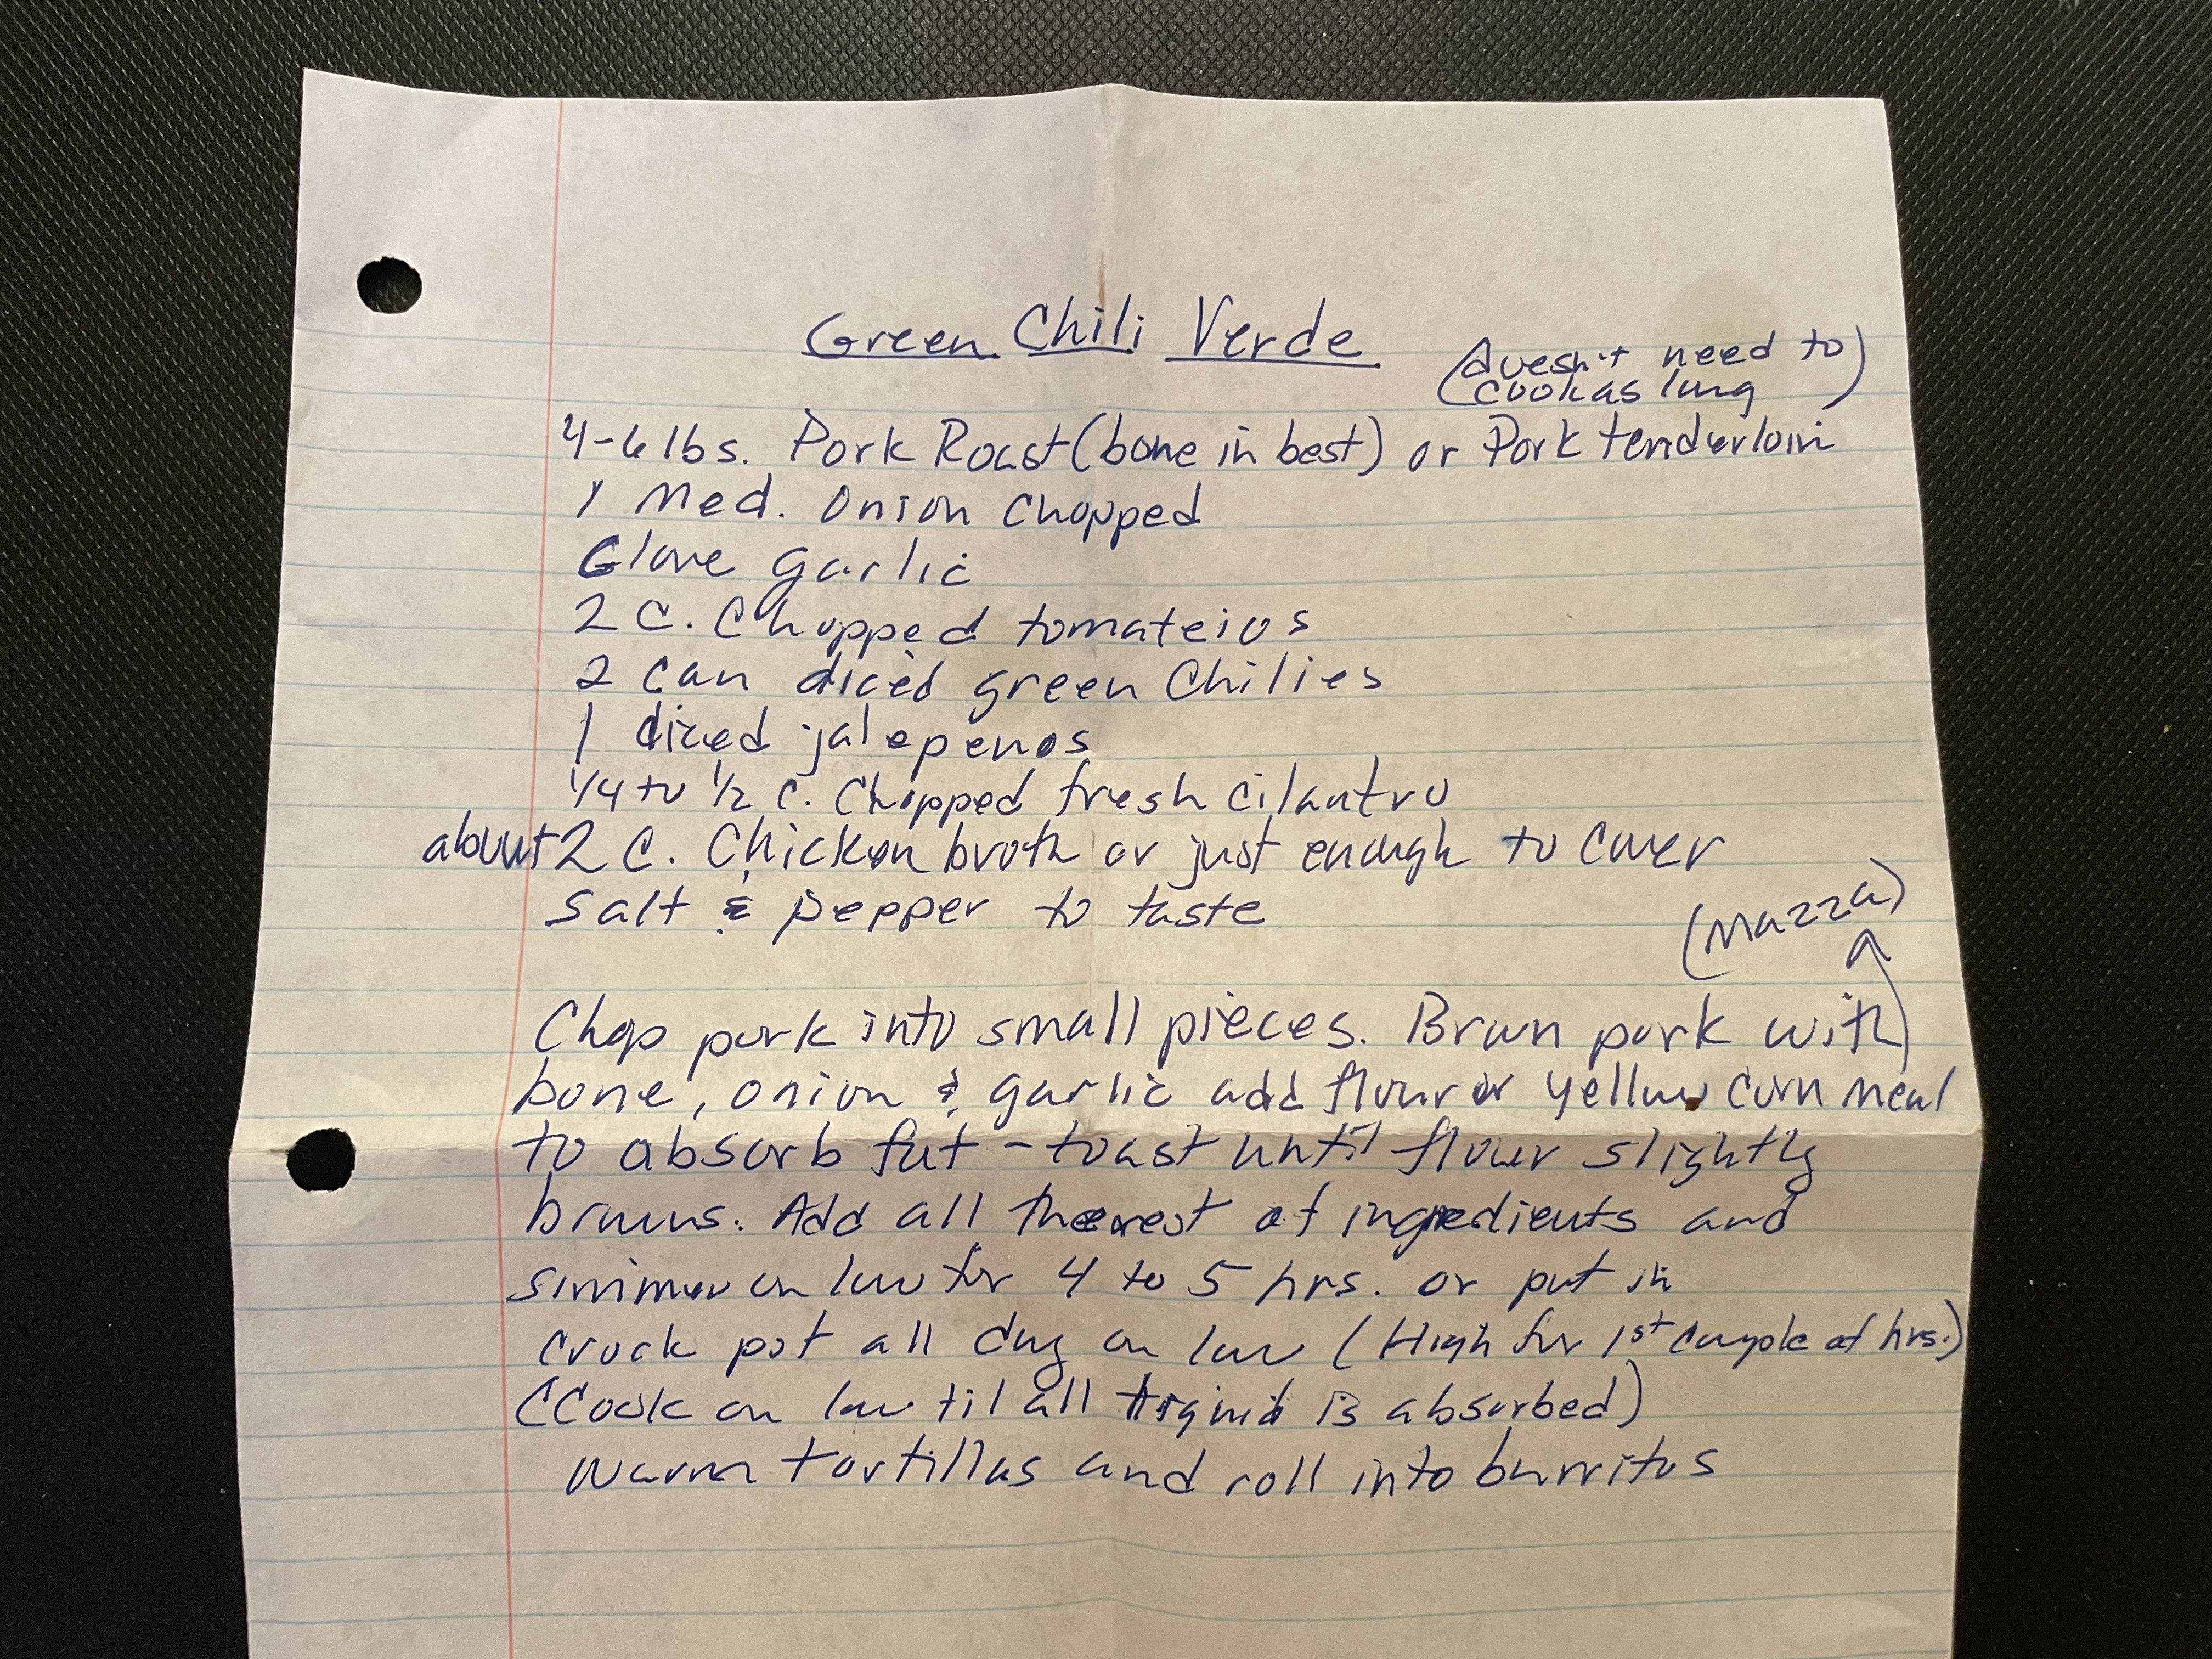 Green Chili Verde
(doesn't need to
cook as long)
4-6 lbs. Pork Roast (bone in best) or Pork tenderloin
1 Med. Onion Chopped
Clove garlic
2 C. Chopped tomateios
2 can diced green Chilies
1 diced jalepenos
1/4 to 1/2 C. Chopped fresh cilantro
about 2 C. Chicken broth or just enough to cover
Salt & pepper to taste
(Mazza)
Chop pork into small pieces. Brown pork with
bone, onion & garlic add flour or yellow corn meal
to absorb fat - toast until flour slightly
browns. Add all the rest of ingredients and
simmer on low for 4 to 5 hrs. or put in
crock pot all day on low (High for 1st couple of hrs.)
(Cook on low til all liquid is absorbed)
Warm tortillas and roll into burritos